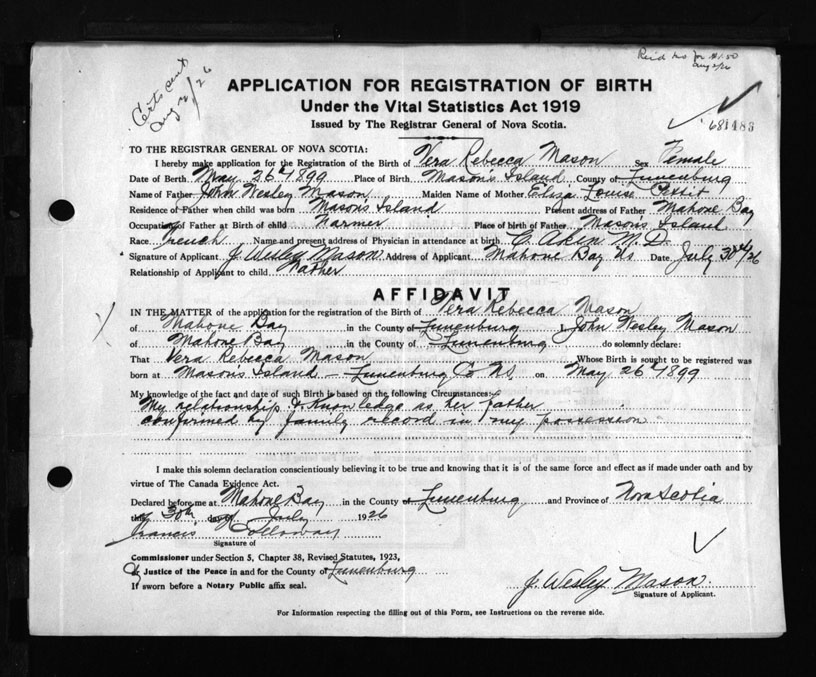 Certs sent
Aug 2/26
APPLICATION FOR REGISTRATION OF BIRTH
Under the Vital Statistics Act 1919
Issued by The Registrar General of Nova Scotia.
TO THE REGISTRAR GENERAL OF NOVA SCOTIA:
I hereby make application for the Registration of the Birth of Vera Rebecca Mason Sex Female
Date of Birth May 26th 1899 Place of Birth Mason's Island County of Lunenburg
Name of Father John Wesley Mason Maiden Name of Mother Eliza Louise
Residence of Father when child was born Mason's Island Present address of Father Mahone Bay
Occupation of Father at Birth of child Farmer Place of birth of Father Mason's Island
Race French Name and present address of Physician in attendance at birth C. Aken M.D.
Signature of Applicant J. Wesley Mason Address of Applicant Mahone Bay NS Date July 30th/26
Relationship of Applicant to child Father
AFFIDAVIT
IN THE MATTER of the application for the registration of the Birth of Vera Rebecca Mason
of Mahone Bay in the County of Lunenburg I, John Wesley Mason
of Mahone Bay in the County of Lunenburg do solemnly declare:
That Vera Rebecca Mason Whose Birth is sought to be registered was
born at Mason's Island - Lunenburg Co NS. on May 26th 1899
My knowledge of the fact and date of such Birth is based on the following Circumstances:
My relationship & knowledge as her father
confirmed by family record in my possession
I make this solemn declaration conscientiously believing it to be true and knowing that it is of the same force and effect as if made under oath and by
virtue of The Canada Evidence Act.
Declared before me at Mahone Bay in the County of Lunenburg and Province of Nova Scotia
this 30th day of July 1926
Francis Holloway
Signature of
Commissioner under Section 5, Chapter 38, Revised Statutes, 1923,
Justice of the Peace in and for the County of Lunenburg
If sworn before a Notary Public affix seal.
J. Wesley Mason.
Signature of Applicant.
For Information respecting the filling out of this Form, see Instructions on the reverse side.